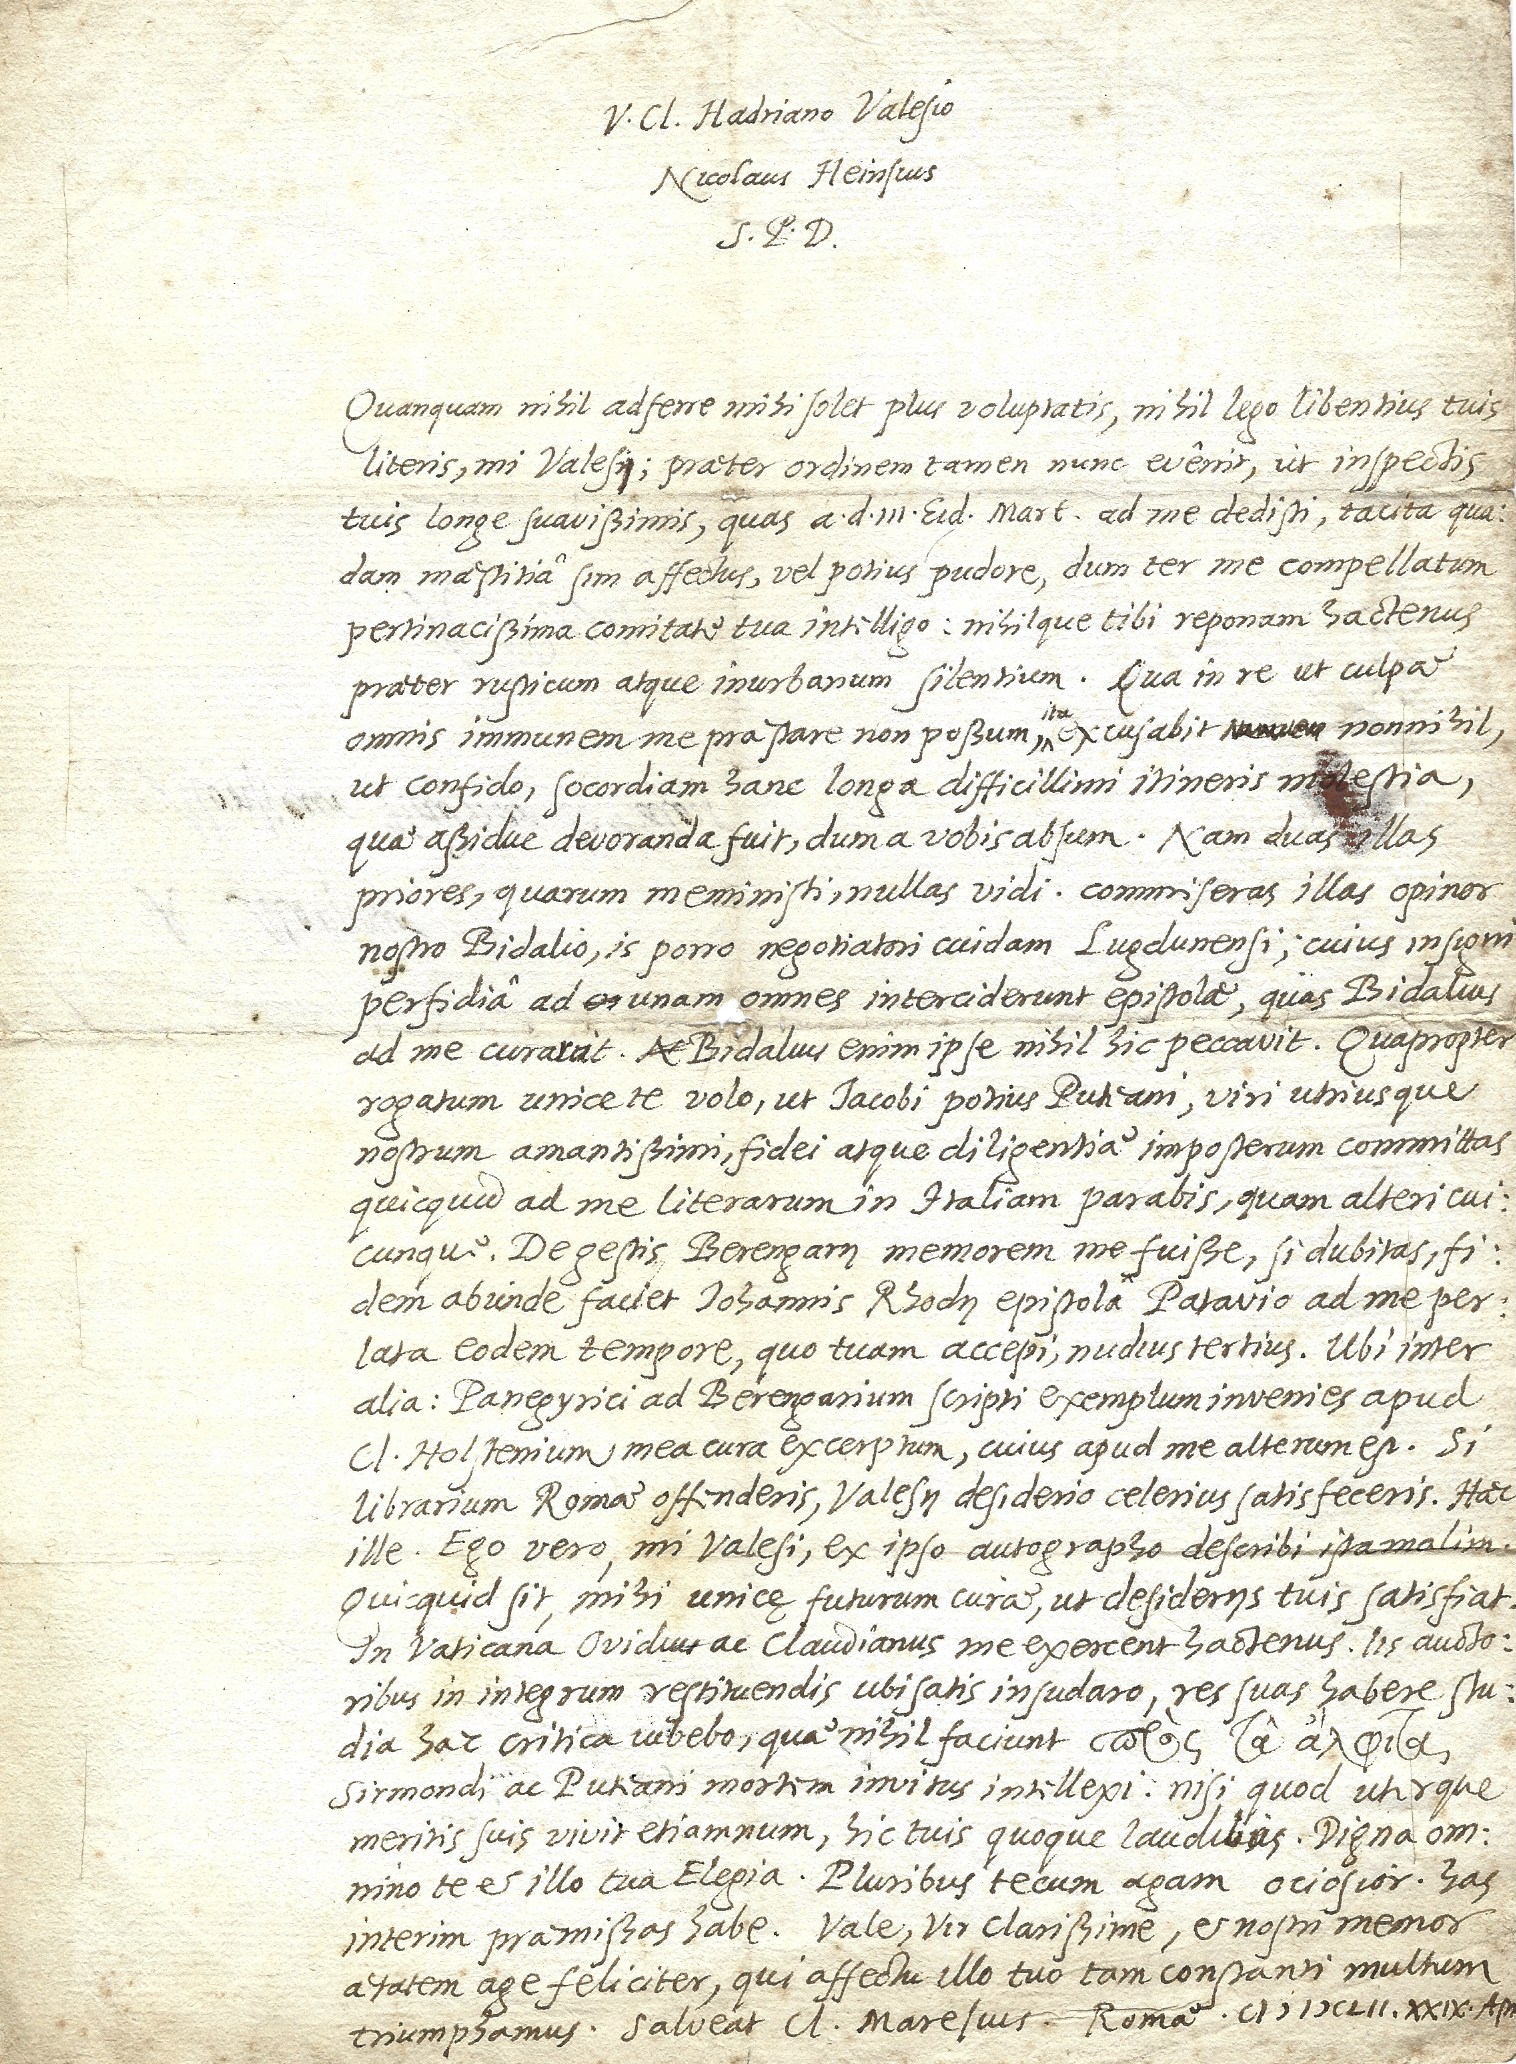 V. Cl. Hadriano Valesio
Nicolaus Heinsius
S. P. D.
Quanquam nihil adferre mihi solet plus voluptatis, nihil lego libentius tuis
literis, mi Valesi; præter ordinem tamen nunc evênit, ut inspectis
tuis longe suavißimis, quas a. d. III. Eid. Mart. ad me dedisti, tacita qua:
dam mæstitiâ sim affectus, vel potius pudore, dum ter me compellatum
pertinacißima comitate tua intelligo: nihilque tibi reponam hactenus
præter rusticum atque inurbanum silentium. Qua in re ut culpæ
omnis immunem me præstare non poßum, ita excusabit nonnihil,
ut confido, socordiam hanc longa difficillimi itineris molestia,
quæ aßidue devoranda fuit, dum a vobis absum. Nam duas illas
priores, quarum meministi, nullas vidi. commiseras illas opinor
nostro Bidalio, is porro negotiatori cuidam Lugdunensi, cuius insigni
perfidiâ ad unam omnes interciderunt epistolæ, quas Bidalius
ad me curarat. Bidalius enim ipse nihil hic peccavit. Quapropter
rogatum unice te volo, ut Iacobi potius Puteani, viri utriusque
nostrum amantißimi, fidei atque diligentiæ imposterum committas
quicquid ad me literarum in Italiam parabis, quam alteri cui:
cunque. De gestis Berengarij memorem me fuiße, si dubitas, fi:
dem abunde faciet Iohannis Rhodij epistola Patavio ad me per:
lata eodem tempore, quo tuam accepi, nudius tertius. Ubi inter
alia: Panegyrici ad Berengarium scripti exemplum invenies apud
Cl. Holstenium mea cura excerptum, cuius apud me alterum est. Si
librarium Romæ offenderis, Valesij desiderio celerius satisfeceris. Hæc
ille. Ego vero, mi Valesi, ex ipso autographo describi ista malim.
Quicquid sit, mihi unicę futurum curæ, ut desiderijs tuis satisfiat.
In Vaticana Ovidius ac Claudianus me exercent hactenus. Iis aucto:
ribus in integrum restituendis ubi satis insudaro, res suas habere stu:
dia hæc critica iubebo, quæ nihil faciunt πρὸς τὰ ἄλφιτα,
Sirmondi ac Puteani mortem invitus intellexi: nisi quod uterque
meritis suis vivit etiamnum, hic tuis quoque laudibus. Digna om:
nino te et illo tua Elegia. Pluribus tecum agam ociosior. has
interim præmißas habe. Vale, Vir Clarißime, et nostri memor
ætatem age feliciter, qui affectu illo tuo tam constanti multum
triumphamus. Salveat Cl. Maresius. Romæ. CIƆ IƆCLII. XXIX. Apr